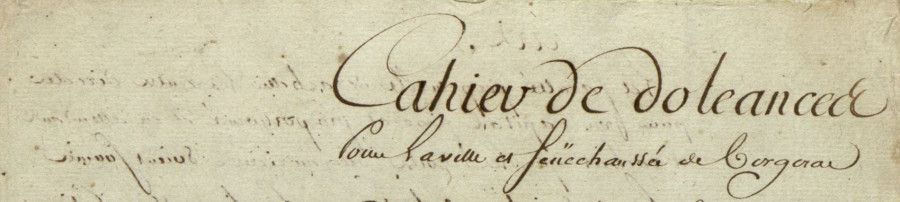 Cahier de doleances
Pour la ville et Senechaussée de Bergerac